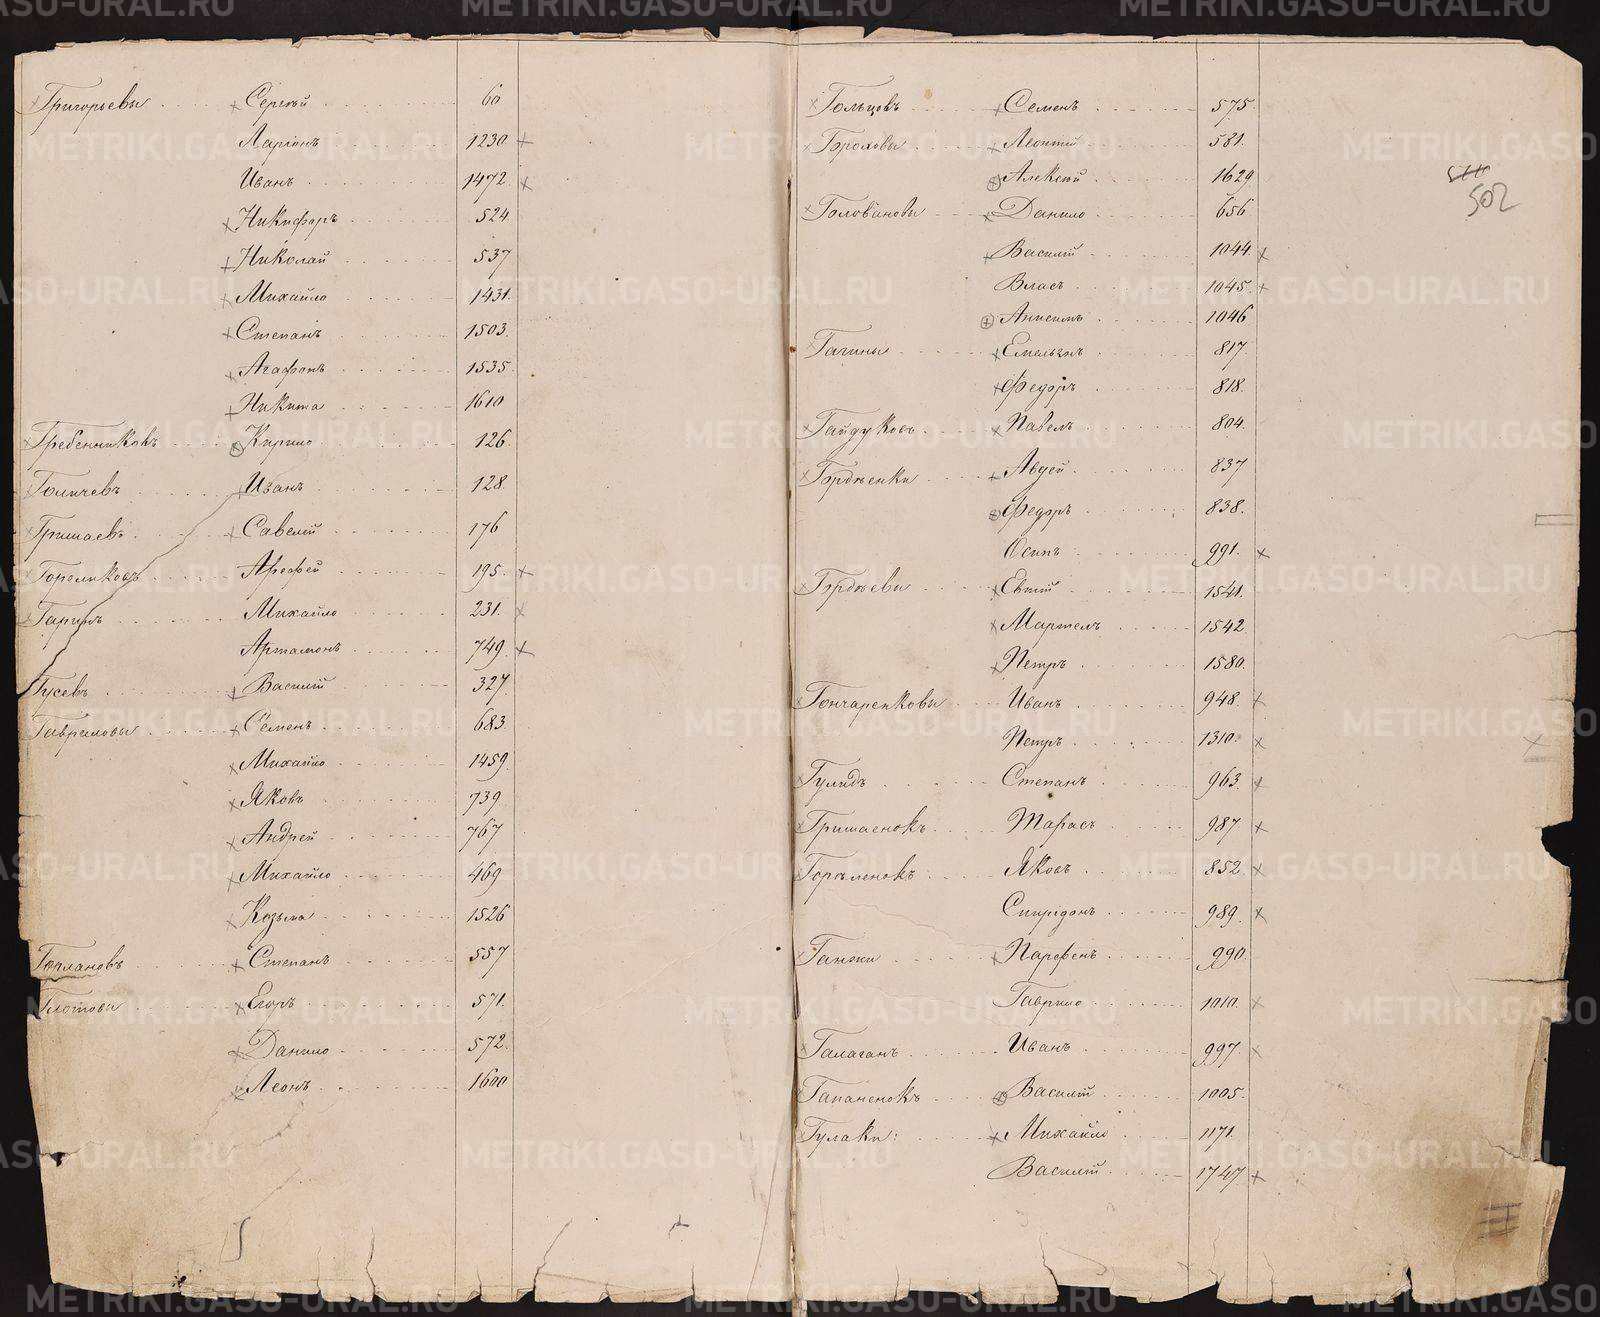 Григорьевы Сергѣй 60
Ларіонъ 1230
Иванъ 1472
Никифоръ 524
Николай 537
Михайло 1431
Степанъ 1503
Агафонъ 1535
Никита 1610
Гребенниковъ Кирило 126
Голичевъ Иванъ 128
Гришаевъ Савелій 176
Гореликовъ Арефей 195
Гаринъ Михайло 231
Артамонъ 749
Гусевъ Василій 327
Гавриловы Семенъ 683
Михайло 1459
Яковъ 739
Андрей 767
Михайло 469
Козьма 1526
Степанъ 557
Глотовы Егоръ 571
Данило 572
Леонъ 1600
Гольцовъ Семенъ 575
Гороховы Леонтій 581
Алексѣй 1629
502
Головановы Данило 656
Василій 1044
Власъ 1045
Анисимъ 1046
Гагины Емельянъ 817
Федоръ 818
Гайдуковъ Павелъ 804
Гордѣенки Авдей 837
Федоръ 838
Осипъ 991
Гордѣевы 1541
1542
Петръ 1580
Гончаренковы Иванъ 948
Петръ 1310
Гулидъ Степанъ 963
Гришаенокъ Тарасъ 987
Горѣленокъ Яковъ 852
Спиридонъ 989
Ганжи Парфенъ 990
Гаврило 1010
Галаганъ Иванъ 997
Гапаненокъ Василій 1005
Гулаки: Михайло 1171
Василій 1747
METRIKI.GASO-URAL.RU